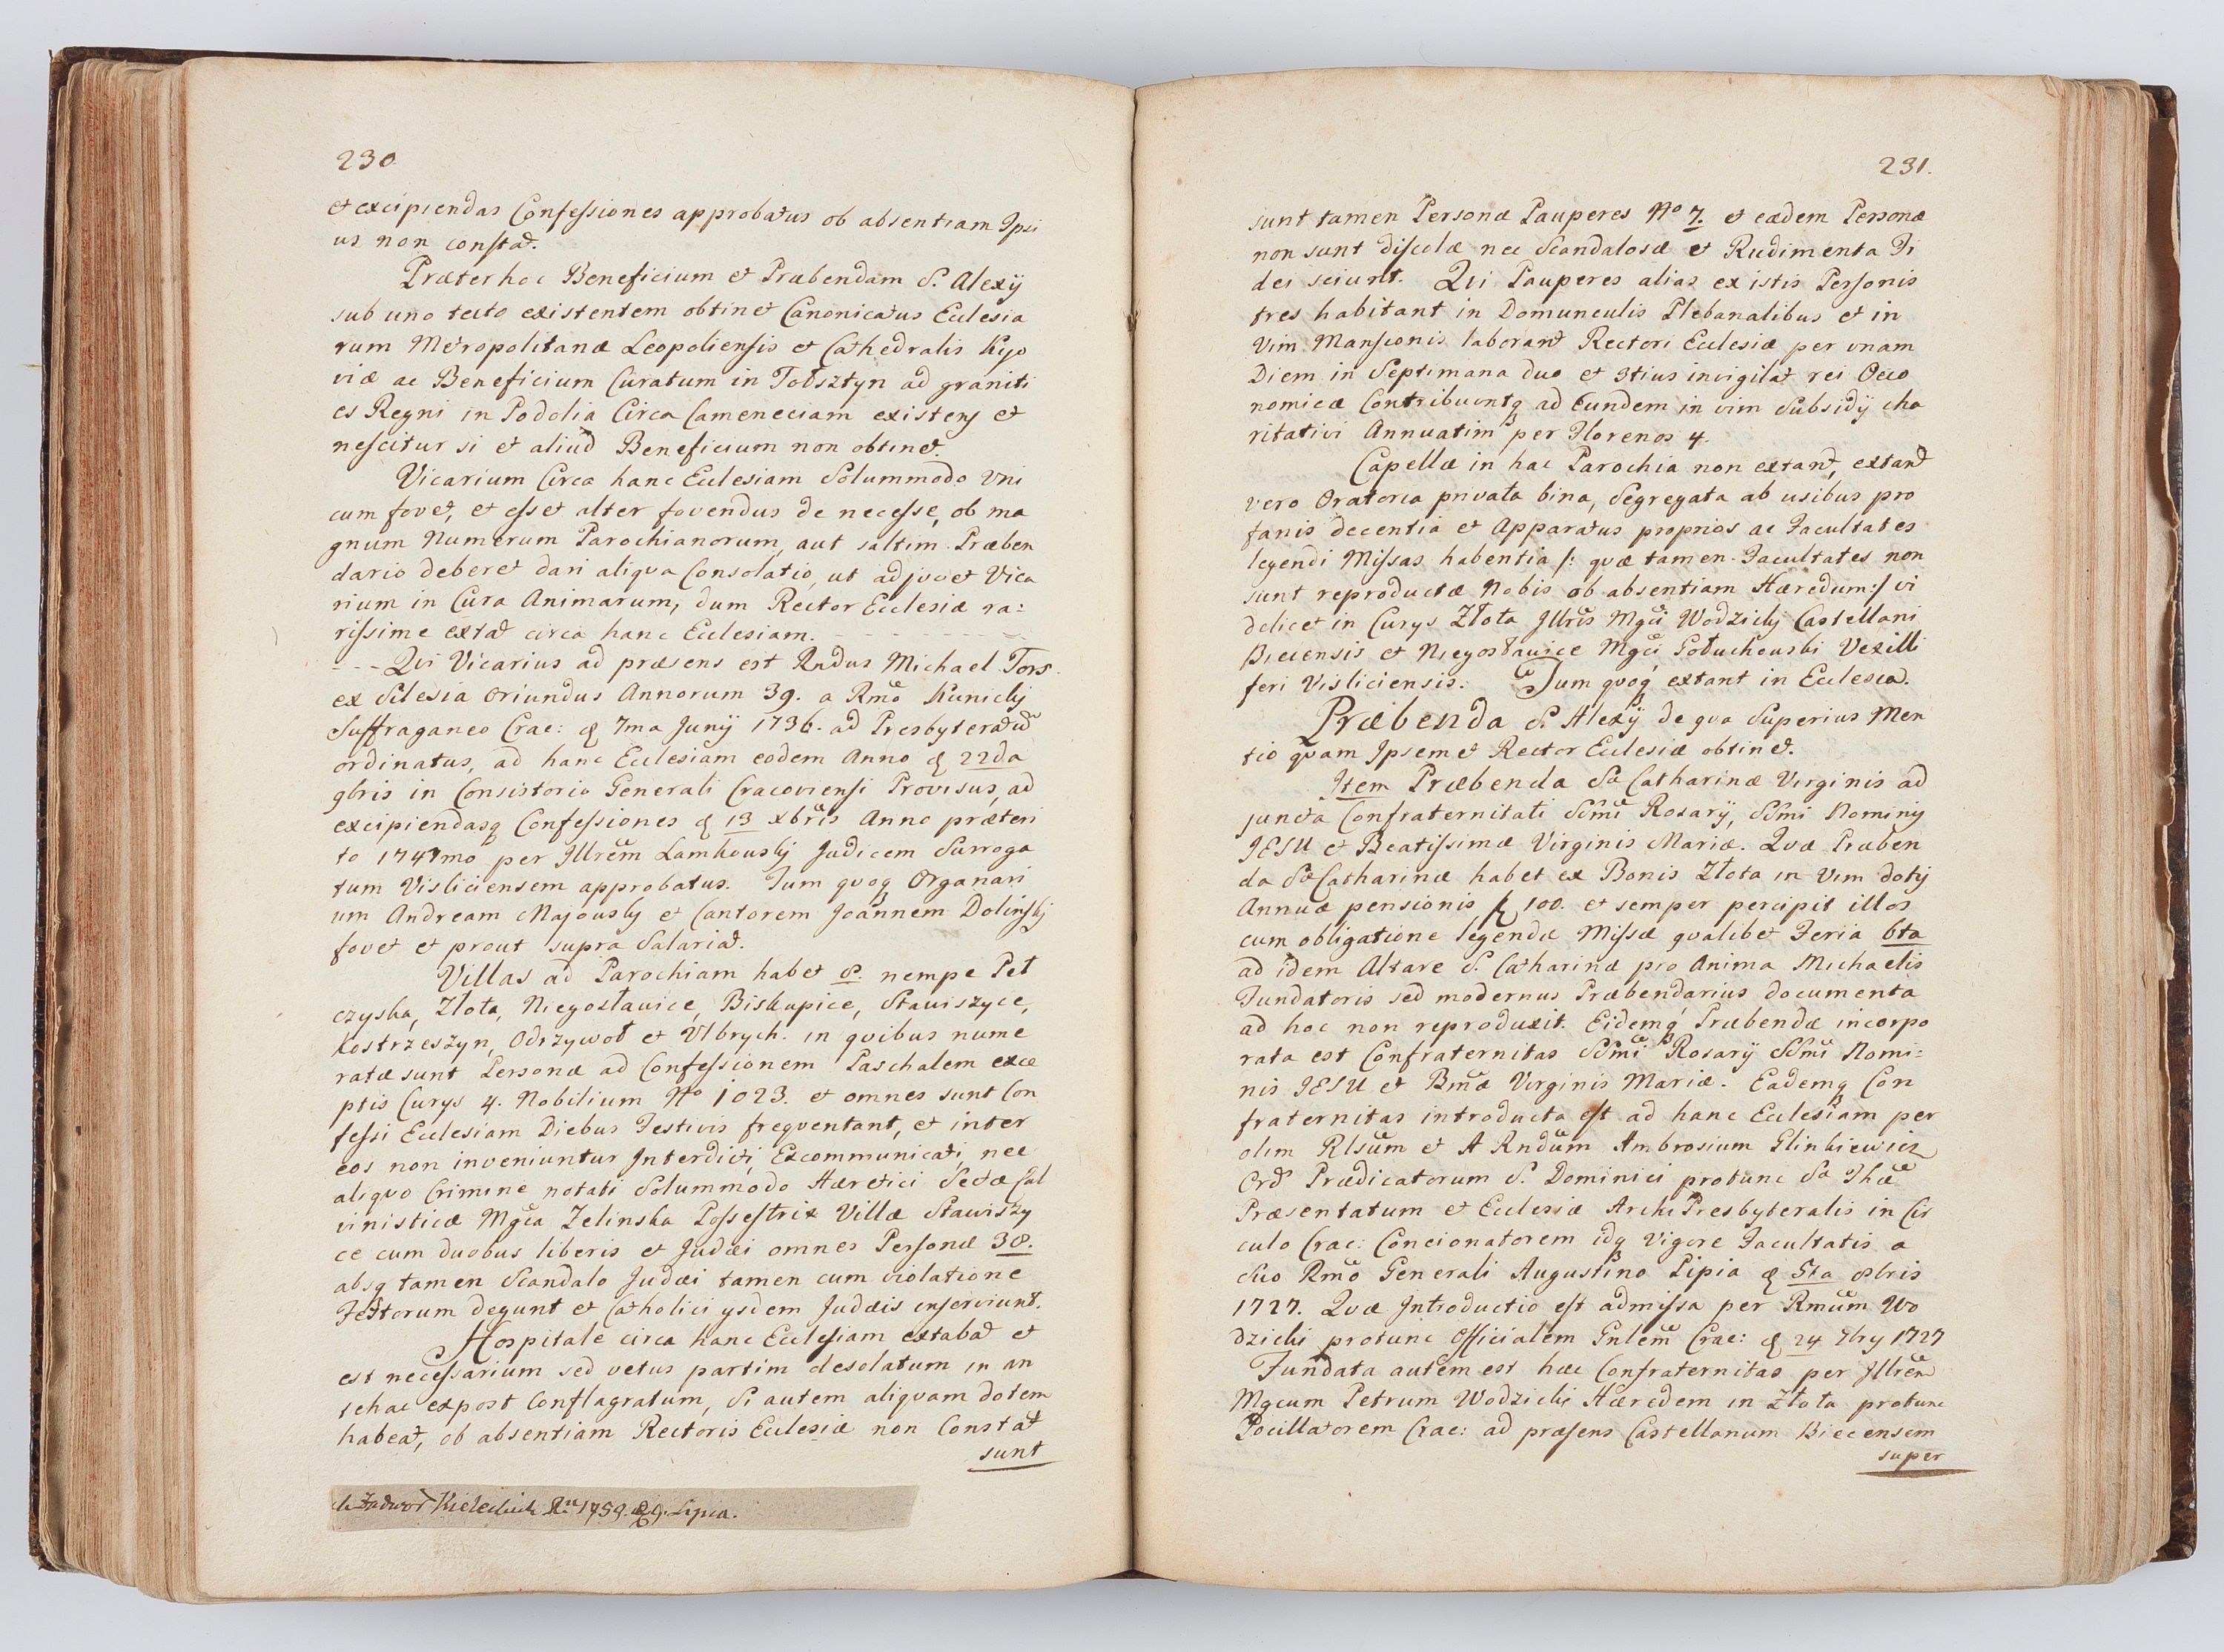 230
et excipiendas Confessiones approbatus ob absentiam Ipsi
us non constat.
Præter hoc Beneficium et Præbendam S. Alexÿ
sub uno tecto existentem obtinet Canonicatus Ecclesia
rum Metropolitanæ Leopoliensis et Cathedralis Kyo
viæ ac Beneficium Curatum in Tołsztyn ad graniti
es Regni in Podolia Circa Cameneciam existens et
nescitur si et aliud Beneficium non obtinet.
Vicarium Circa hanc Ecclesiam Solummodo Vni
cum fovet, et esset alter fovendus de necesse, ob ma
gnum Numerum Parochianorum, aut saltim Præben
dario deberet dari aliqva Consolatio, ut adjuvet Vica
rium in Cura Animarum, dum Rector Ecclesiæ ra:
rissime extat circa hanc Ecclesiam.
Qvi Vicarius ad præsens est Rndus Michael Tors
ex Silesia Oriundus Annorum 39. a Rmo Kunicky
Suffraganeo Crac: d 7ma Junÿ 1736. ad Presbyteratũ
ordinatus, ad hanc Ecclesiam eodem Anno d 22da
9bris in Consistorio Generali Cracoviensi Provisus, ad
excipiendasq Confessiones d 13 xbris Anno præteri
to 1747mo per Illrem Lamkousky Judicem Surroga
tum Visliciensem approbatus. Tum qvoq Organari
um Andream Majousky et Cantorem Joannem Dolinsky
fovet et prout supra Salariat.
Villas ad Parochiam habet 8. nempe Peł
czyska, Złota, Niegosławice, Biskupice, Stawiszyce,
Kostrzeszyn, Odrzywoł et Vlbrych. in qvibus nume
ratæ sunt Personæ ad Confessionem Paschalem exce
ptis Curys 4. Nobilium No 1023. et omnes sunt Con
fessi Ecclesiam Diebus Festivis freqventant, et inter
eos non inveniuntur Interdicti, Excommunicati, nec
aliqvo Crimine notati Solummodo Hæretici Sectæ Cal
vinisticæ Mgca Zelinska Possestrix Villæ Stawiszy
ce cum duobus liberis et Judæi omnes Personæ 38.
absq tamen Scandalo Judæi tamen cum violatione
Festorum degunt et Catholici ysdem Judæis inserviunt.
Hospitale circa hanc Ecclesiam extabat et
est necessarium sed vetus partim desolatum in an
tehac expost Conflagratum, Si autem aliqvam dotem
habeat, ob absentiam Rectoris Ecclesiæ non Constat
sunt
1759. 29. Lipca.
231.
sunt tamen Personæ Pauperes No 7. et eædem Personæ
non sunt discolæ nec Scandalosæ et Rudimenta Fi
dei sciunt. Qvi Pauperes alias ex istis Personis
tres habitant in Domunculis Plebanalibus et in
Vim Mansionis laborant Rectori Ecclesiæ per vnam
Diem in Septimana duo et 3tius invigilat rei Oeco
nomicæ Contribuuntq ad Eundem in vim Subsidÿ cha
ritativi Annuatim per Florenos 4.
Capellæ in hac Parochia non extant, extant
vero Oratoria privata bina, Segregata ab usibus pro
fanis decentia et Apparatus proprios ac Facultates
legendi Missas habentia /: qvæ tamen Facultates non
sunt reproductæ Nobis ob absentiam Hæredum :/ vi
delicet in Curys Złota Illris Mgci Wodzicky Castellani
Biecensis et Niegosławice Mgci Gołuchouski Vexilli
feri Visliciensis. Tum qvoq extant in Ecclesia.
Præbenda S. Alexÿ de qva Superius Men
tio qvam Ipsemet Rector Ecclesiæ obtinet.
Item Præbenda Sæ Catharinæ Virginis ad
juncta Confraternitati SSmi Rosarÿ, SSmi Nominy
JESU et Beatissimæ Virginis Mariæ. Qvæ Præben
da Sæ Catharinæ habet ex Bonis Złota in Vim doty
Annuæ pensionis f 100. et semper percipit illos
cum obligatione legendæ Missæ qvalibet Feria 6ta
ad idem Altare S. Catharinæ pro Anima Michaelis
Fundatoris sed modernus Præbendarius documenta
ad hoc non reproduxit. Eidemq Præbendæ incorpo
rata est Confraternitas SSmi Rosarÿ SSmi Nomi=
nis JESU et Bmæ Virginis Mariæ. Eademq Con
fraternitas introducta est ad hanc Ecclesiam per
olim Rlsum et A Rndum Ambrosium Glinkiewicz
Ord Prædicatorum S. Dominici protunc Sa Thæ
Præsentatum et Ecclesiæ ArchiPresbyteralis in Cir
culo Crac: Concionatorem idq Vigore Facultatis a
Suo Rmo Generali Augustino Pipia d 5ta 8bris
1727. Qvæ Introductio est admissa per Rmum Wo
dzicki protunc Officialem Gnlem Crac: d 24 7bry 1727
Fundata autem est hæc Confraternitas per Illrem
Mgcum Petrum Wodzicki Hæredem in Złota protunc
Pocillatorem Crac: ad præsens Castellanum Biecensem
super